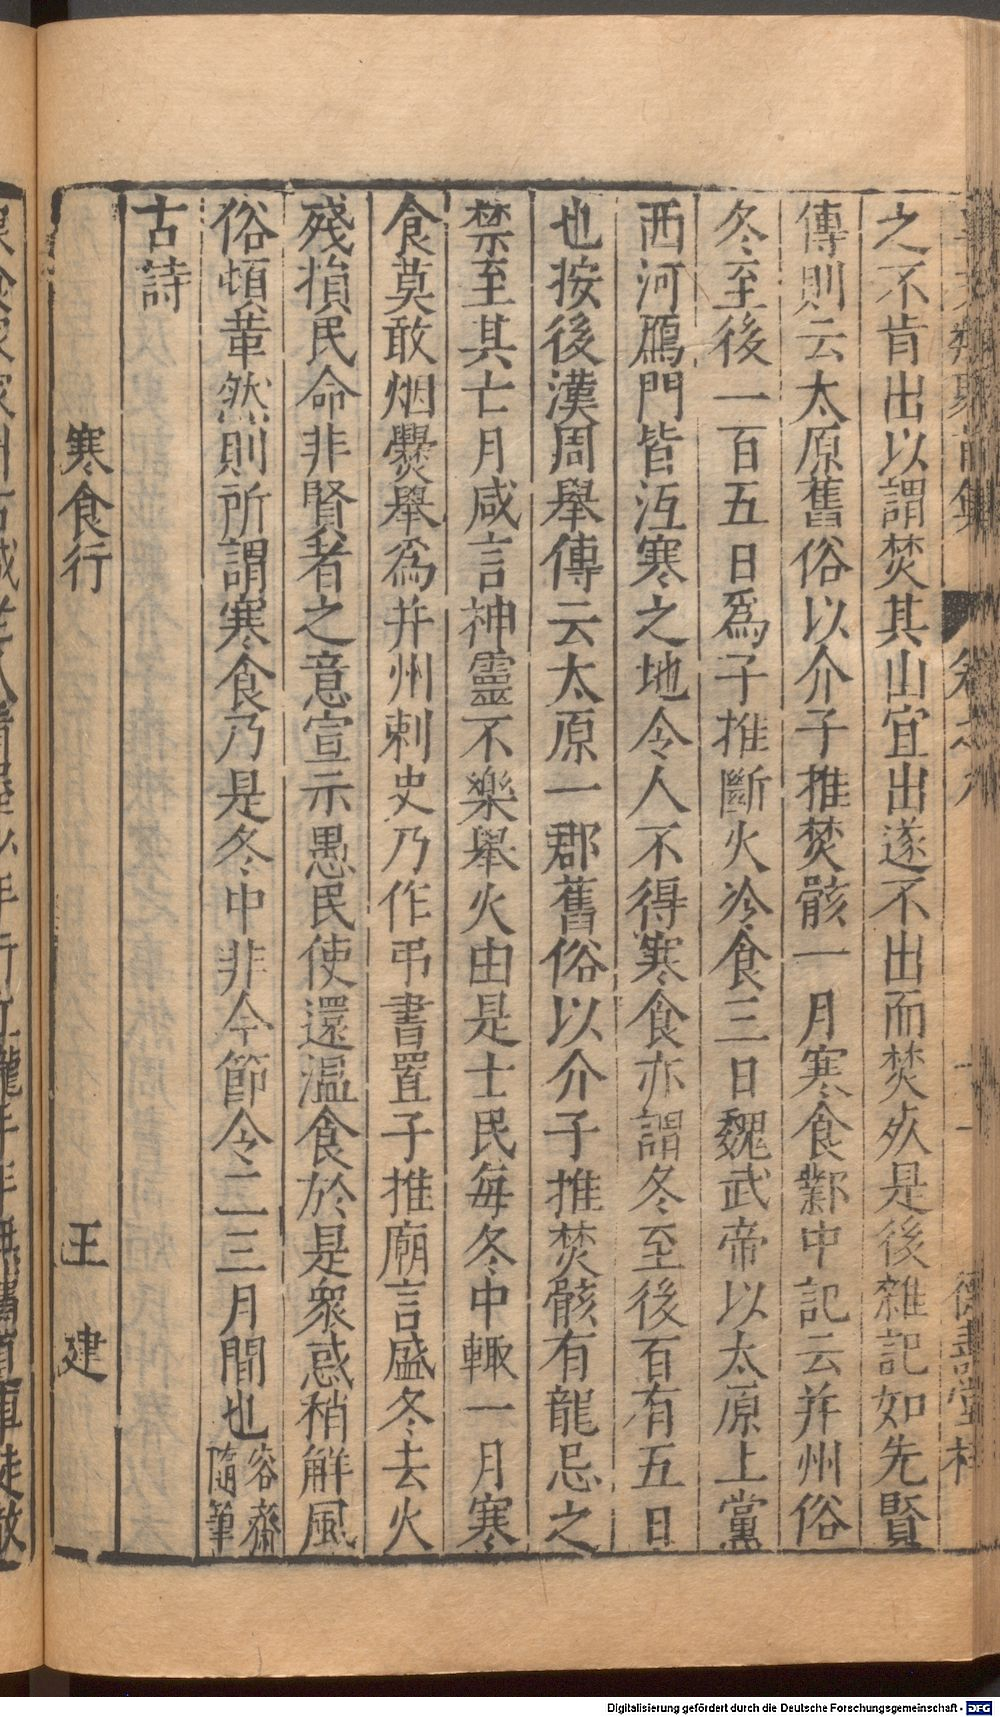 之不肯出以謂焚其山宜出遂不出而焚死是後雜記如先賢
傳則云太原舊俗以介子推焚骸一月寒食鄴中記云并州俗
冬至後一百五日爲子推斷火冷食三日魏武帝以太原上黨
西河鴈門皆沍寒之地令人不得寒食亦謂冬至後百有五日
也按後漢周舉傳云太原一郡舊俗以介子推焚骸有龍忌之
禁至其亡月咸言神靈不樂舉火由是士民每冬中輙一月寒
食莫敢烟爨舉爲并州刺史乃作弔書置子推廟言盛冬去火
殘損民命非賢者之意宣示愚民使還温食於是衆惑稍解風
俗頓革然則所謂寒食乃是冬中非今節令二三月間也容齋
隨筆
古詩
寒食行 王建
Digitalisierung gefördert durch die Deutsche Forschungsgemeinschaft - DFG